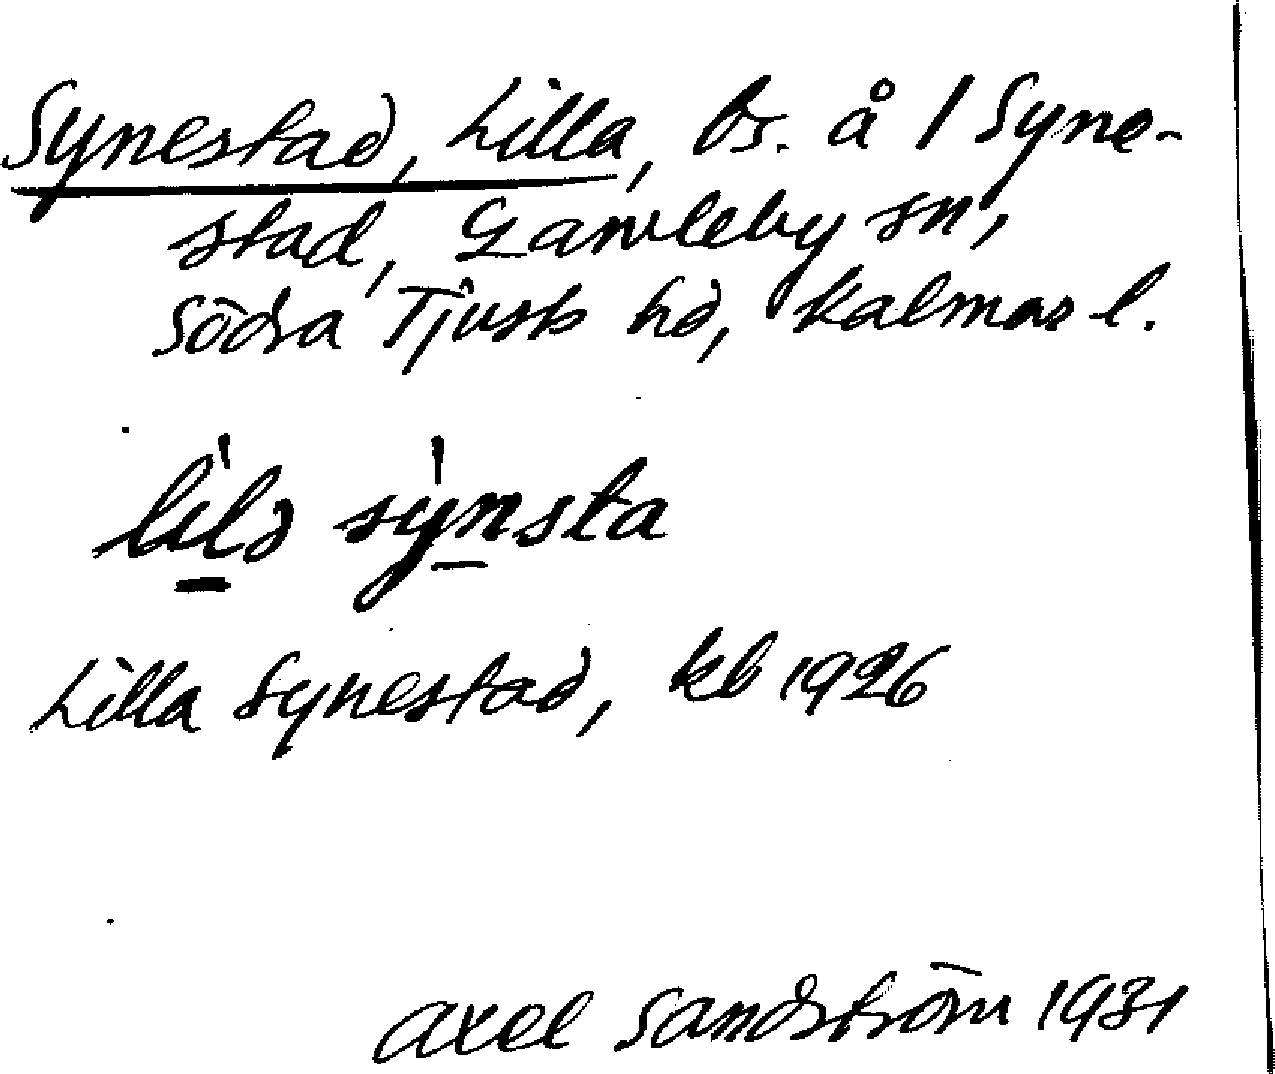 Synestad, Lilla, bs. å / Syne-
stad, Gamleby sn,
Södra Tjusts hd, Kalmar l.
lilə synsta
Lilla Synestad, kb 1926
Axel Sandström 1931